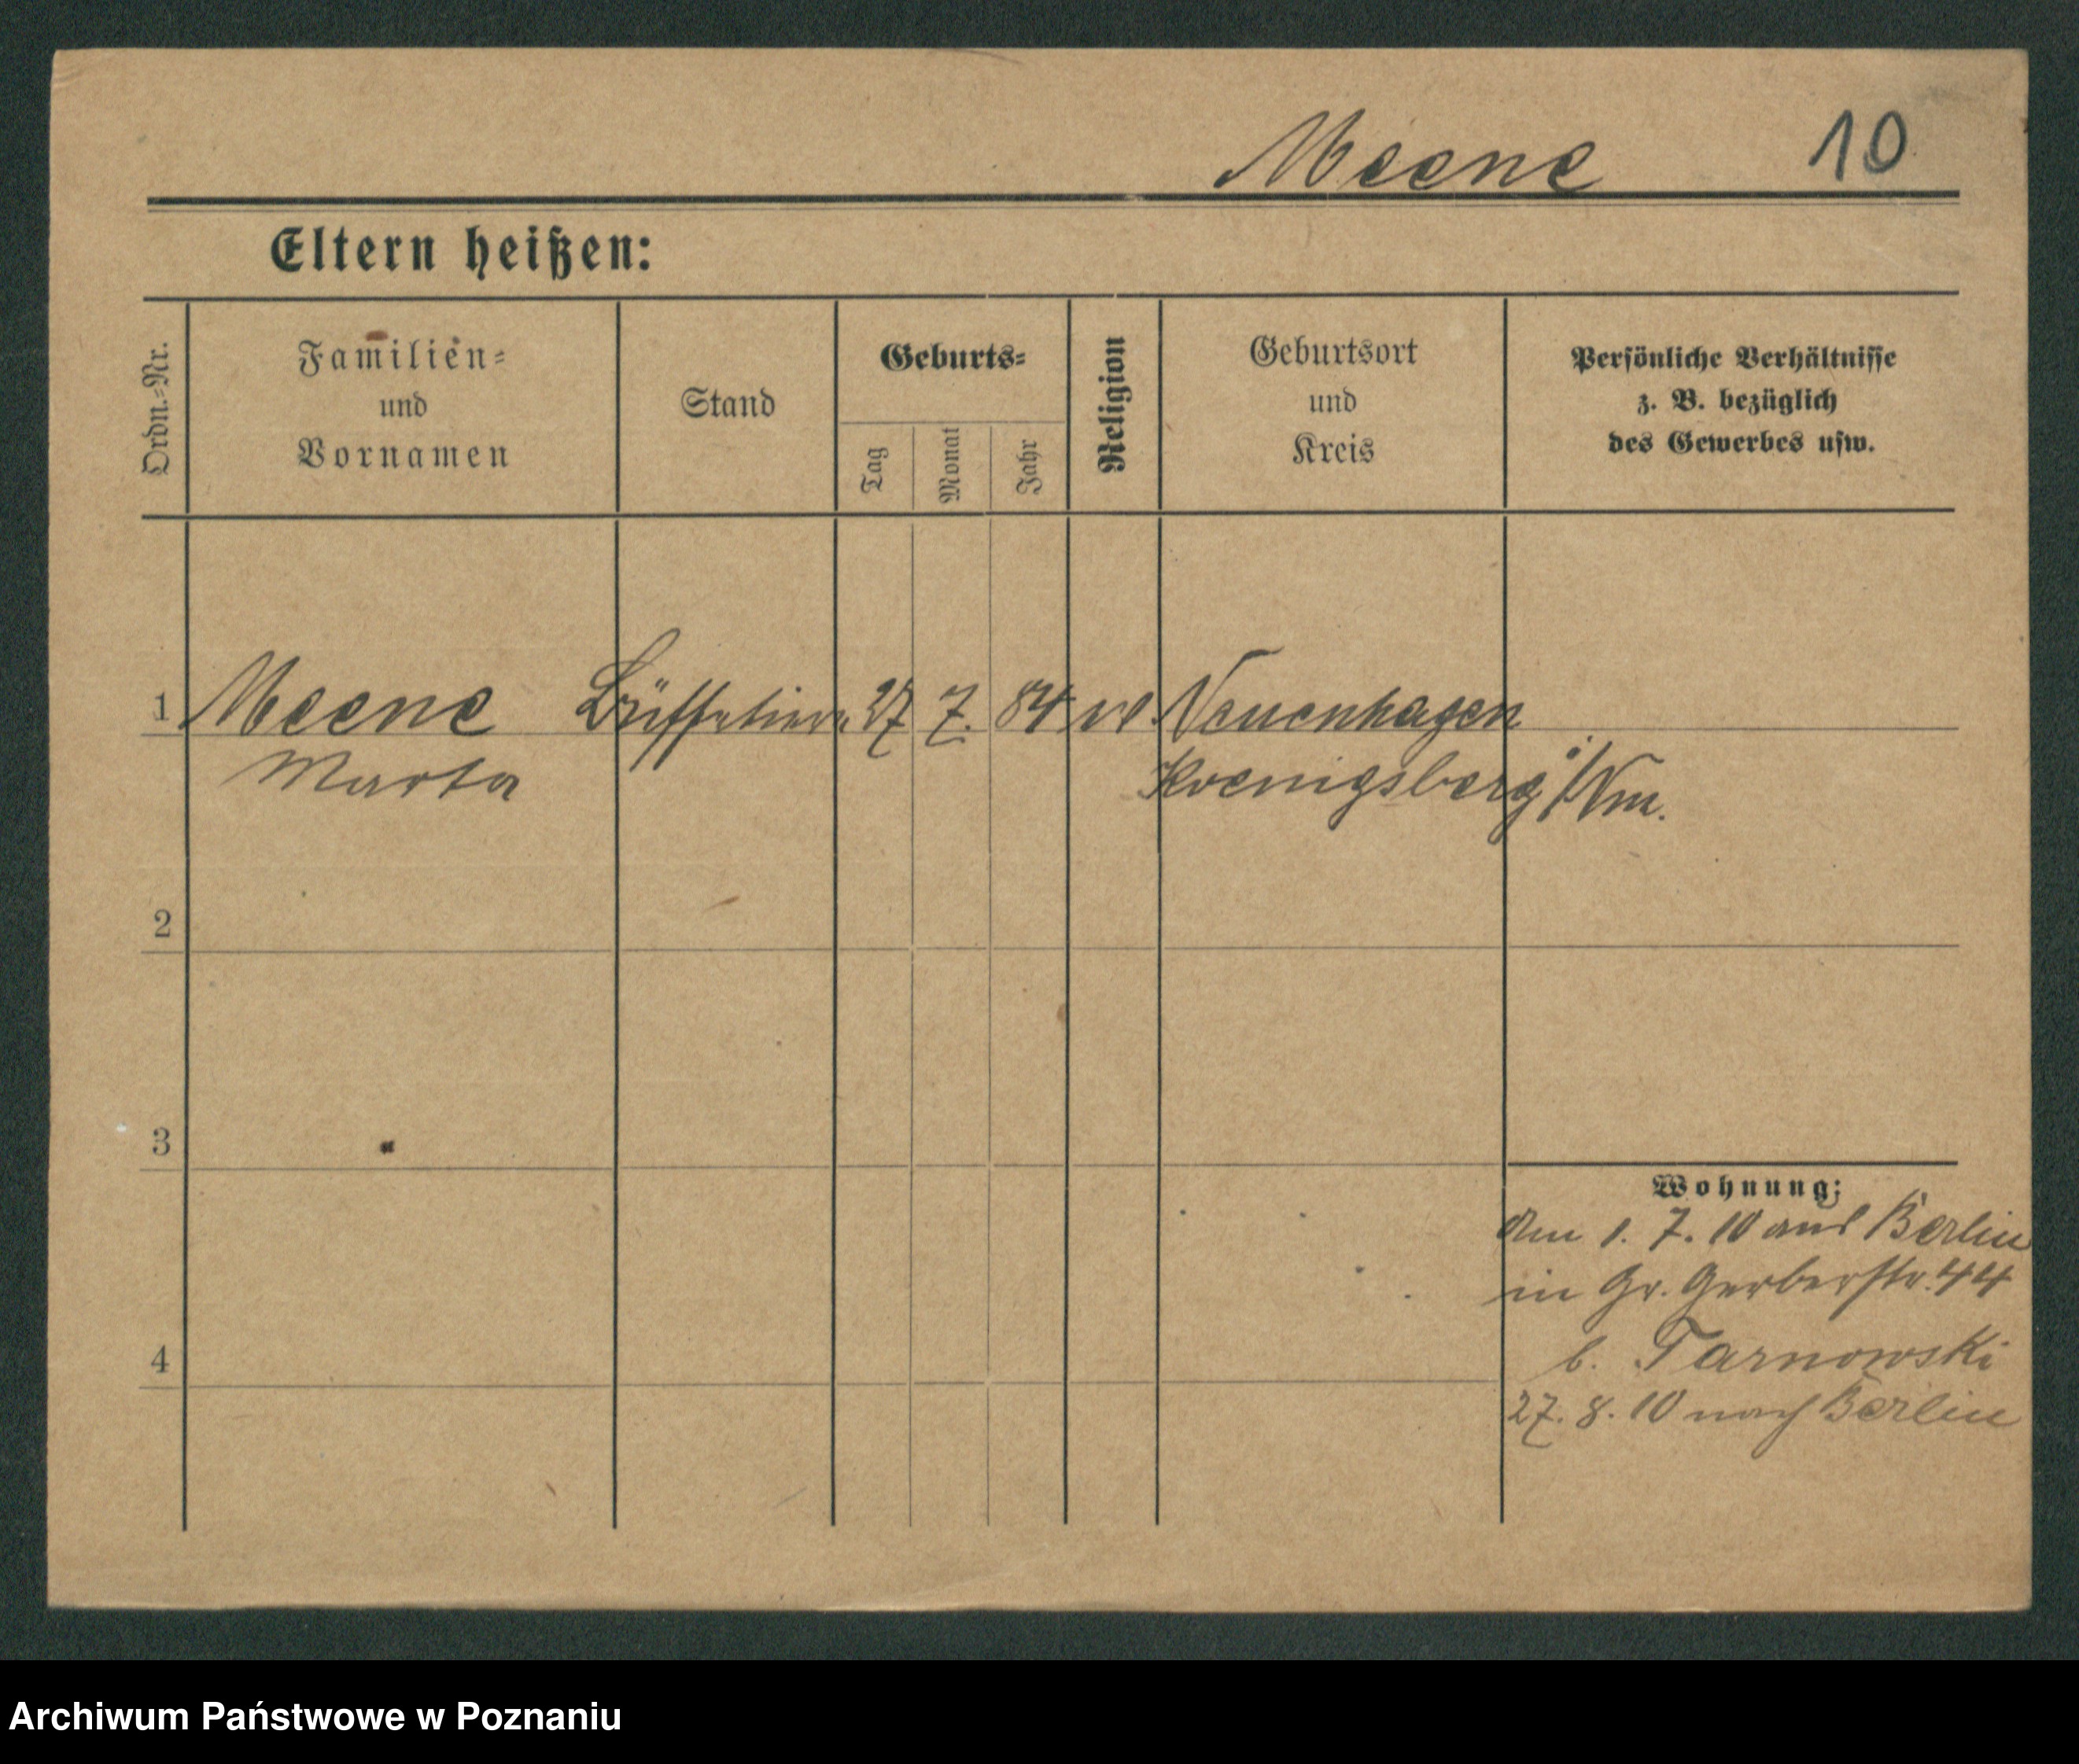 Meene 10
Eltern heißen:
Ordn.-Nr.
Familien-
und
Vornamen
Stand
Geburts-
Tag
Monat
Jahr
Religion
Geburtsort
und
Kreis
Persönliche Verhältnisse
z. B. bezüglich
des Gewerbes usw.
1 Meene 27 7. 84 Neuenhagen
Marta Koenigsberg i/Nm.
2
3
4
Wohnung:
den 1. 7. 10 aus Berlin
in Gr. Gerberstr. 44
b. Tarnowski
27. 8. 10 nach Berlin
Archiwum Państwowe w Poznaniu